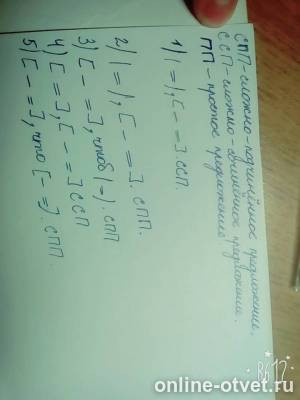 СПП-сложно-подчинённое предложение,
ССП-сложно-сочинённое предложение.
ПП-простое предложение
1) [=], [- =] ССП.
2) (=), [- =]. СПП.
3) [- =], чтоб (=). СПП
4) [=], [- =] ССП
5) [- =], что (- =). СПП.
online-otvet.ru